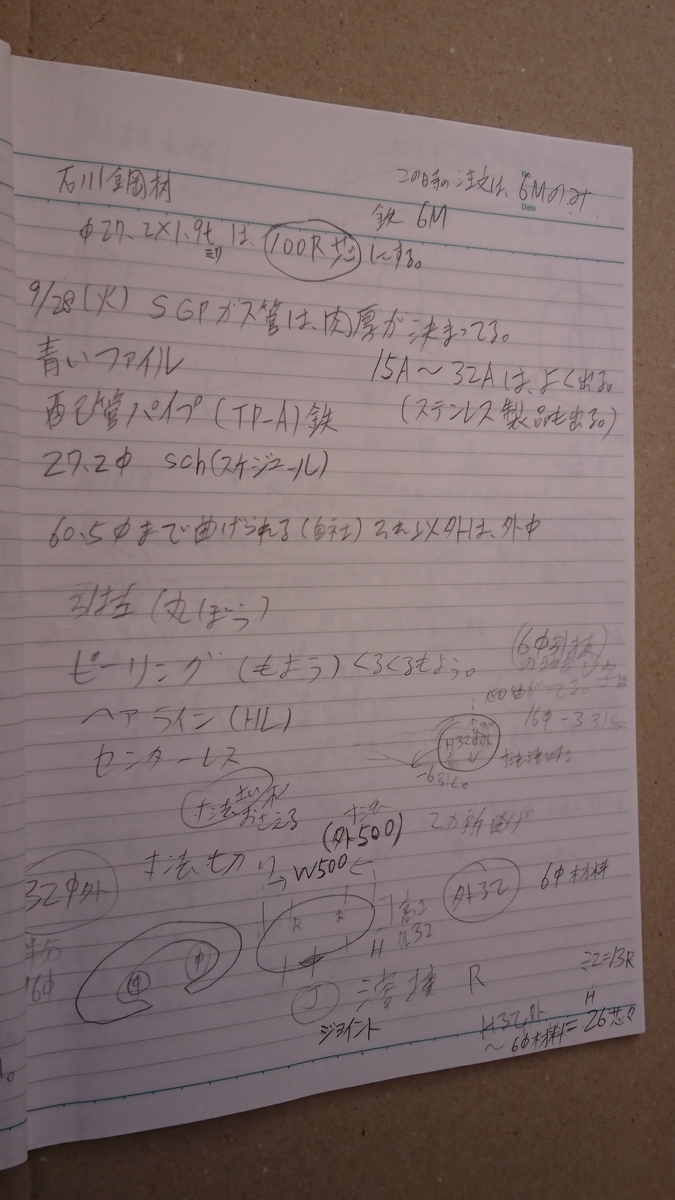 石川鋼材
この時の注文は、6Mのみ
鉄 6M
Date
φ27.2×1.9t は、100R芯にする。
ミリ
9/28(火) SGPガス管は、肉厚が決まってる。
青いファイル 15A〜32Aは、よく出る。
配管パイプ(TP-A)鉄 (ステンレス製品も出る。)
27.2φ sch(スケジュール)
60.5φまで曲げられる(自社)それ以外は、外中
(丸ぼう)
ピーリング(もよう)くるくるもよう。
(6φ引抜)
ヘアライン(HL)
16φ-3
H32φ外
センターレス
寸法
おさえる
寸法
(外500) 2ヵ所曲げ
寸法切り W500
外32 6φ材料
32φ外
R R 高さ
H 外32
半分
16φ
J 溶接 R
÷2=13R
ジョイント
H32外 H
〜6φ材料=26芯々